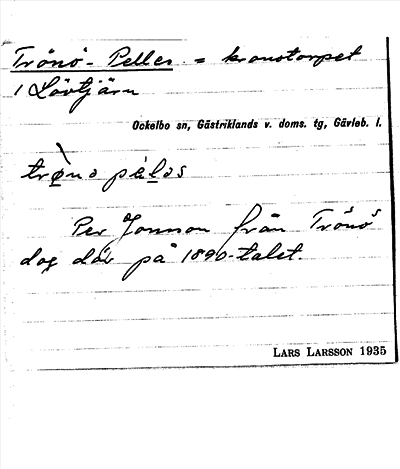 Trönö-Pelles = kronotorpet
i Lövtjärn
Ockelbo sn, Gästriklands v. doms. tg, Gävleb. l.
Per Jonson från Trönö
dog där på 1890-talet.
LARS LARSSON 1935